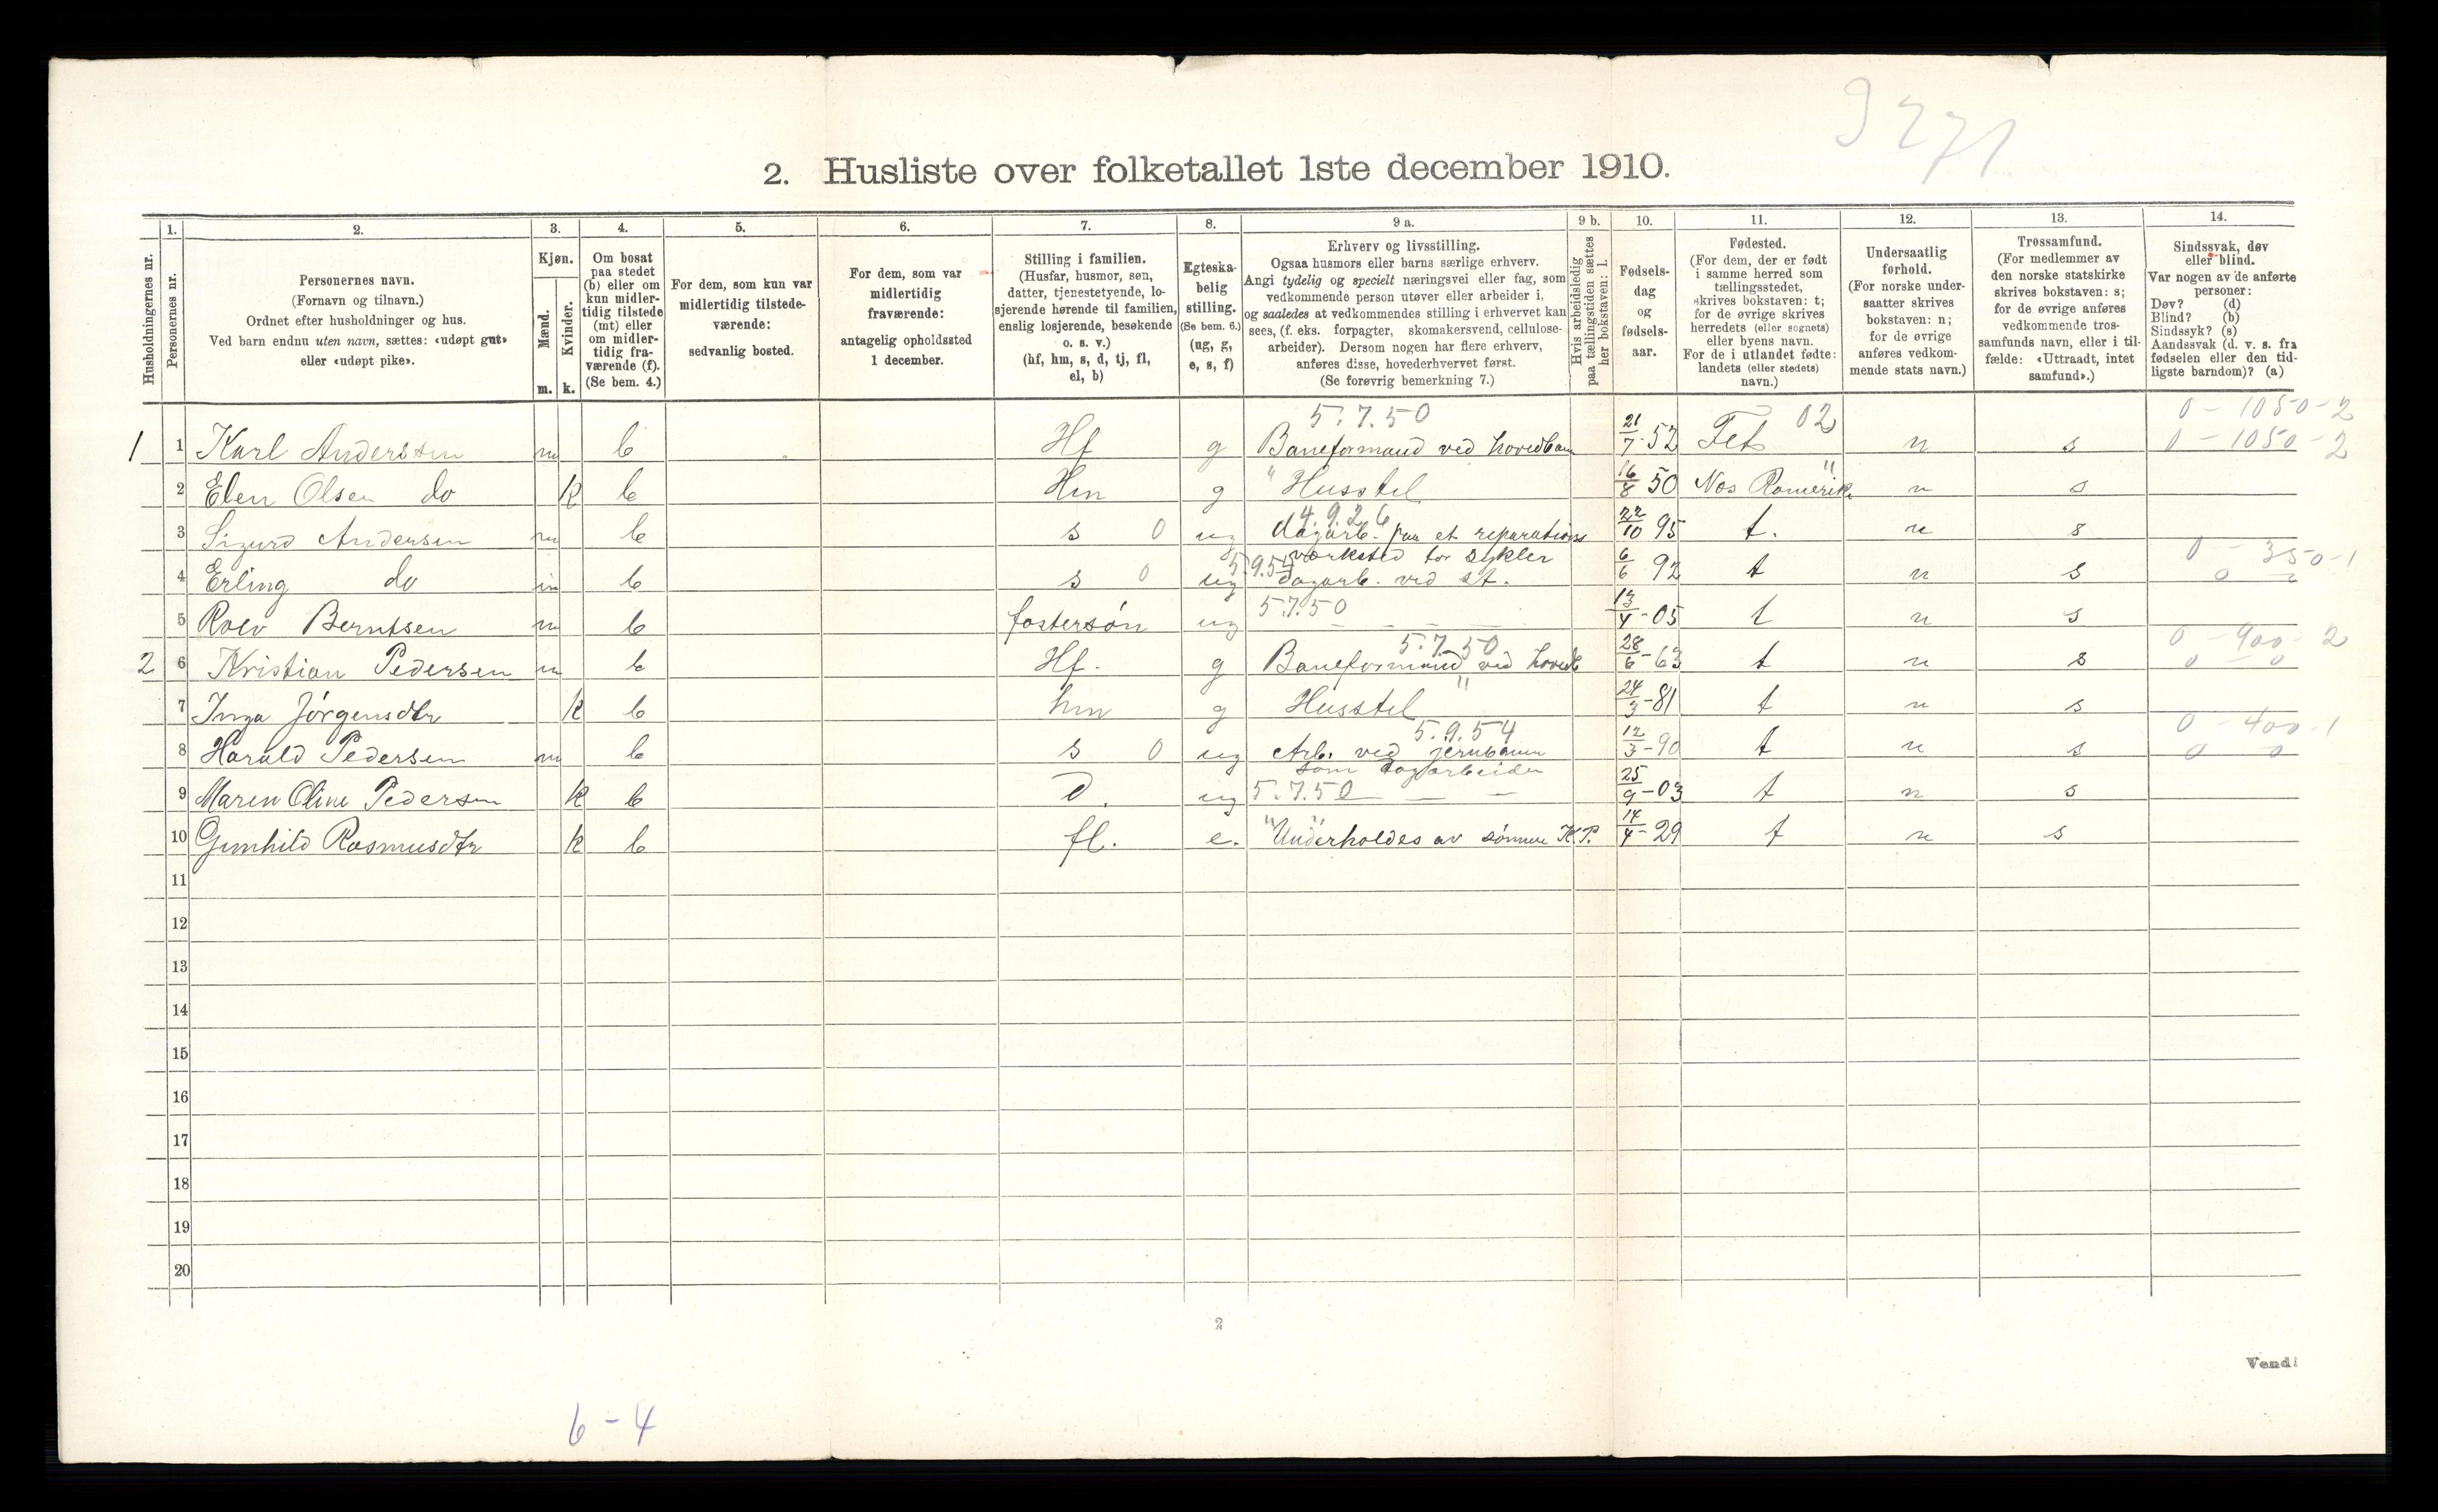 9271
2. Husliste over folketallet 1ste december 1910.
Husholdningernes nr.
1.
Personernes nr.
2.
Personernes navn.
(Fornavn og tilnavn.)
Ordnet efter husholdninger og hus.
Ved barn endnu uten navn, sættes: «udøpt gut»
eller «udøpt pike».
3.
Kjøn.
Mænd.
Kvinder.
m. k.
4.
Om bosat
paa stedet
(b) eller om
kun midler-
tidig tilstede
(mt) eller
om midler-
tidig fra-
værende (f).
(Se bem. 4.)
5.
For dem, som kun var
midlertidig tilstede-
værende:
sedvanlig bosted.
6.
For dem, som var
midlertidig
fraværende:
antagelig opholdssted
1 december.
7.
Stilling i familien.
(Husfar, husmor, søn,
datter, tjenestetyende, lo-
sjerende hørende til familien,
enslig losjerende, besøkende
o. s. v.)
(hf, hm, s, d, tj, fl,
el, b)
8.
Egteska-
belig
stilling.
(Se bem. 6.)
(ug, g,
e, s, f)
9 a.
Erhverv og livsstilling.
Ogsaa husmors eller barns særlige erhverv.
Angi tydelig og specielt næringsvei eller fag, som
vedkommende person utøver eller arbeider i,
og saaledes at vedkommendes stilling i erhvervet kan
sees, (f. eks. forpagter, skomakersvend, cellulose-
arbeider). Dersom nogen har flere erhverv,
anføres disse, hovederhvervet først.
(Se forøvrig bemerkning 7.)
9 b.
Hvis arbeidsledig
paa tællingstiden sættes
her bokstaven: l.
10.
Fødsels-
dag
og
fødsels-
aar.
11.
Fødested.
(For dem, der er født
i samme herred som
tællingsstedet,
skrives bokstaven: t;
for de øvrige skrives
herredets (eller sognets)
eller byens navn.
For de i utlandet fødte:
landets (eller stedets)
navn.)
12.
Undersaatlig
forhold.
(For norske under-
saatter skrives
bokstaven: n;
for de øvrige
anføres vedkom-
mende stats navn.)
13.
Trossamfund.
(For medlemmer av
den norske statskirke
skrives bokstaven: s;
for de øvrige anføres
vedkommende tros-
samfunds navn, eller i til-
fælde: «Uttraadt, intet
samfund».)
14.
Sindssvak, døv
eller blind.
Var nogen av de anførte
personer:
Døv? (d)
Blind? (b)
Sindssyk? (s)
Aandssvak (d. v. s. fra
fødselen eller den tid-
ligste barndom)? (a)
5.7.50 02 0 - 1050 - 2
1 1 Karl Andersen m b Hf g Baneformand ved hovedban 21/7-52 Fet n s 0 - 1050 - 2
2 Elen Olsen do k b Hm g " Husstel 16/8 50 Nos Romerike " n s
4.9.26
3 Sigurd Andersen m b s 0 ug dagarb. paa et reparations 22/10 95 t. n s
værksted for sykler 0 - 350 - 1
4 Erling do m b s 0 ug 5.9.54 dagarb. ved st. 6/6 92 t n s 0
5 Rolv Berntsen m b fostersøn ug 5.7.50 – – – 13/4-05 t n s
5.7.50 0 - 900 - 2
2 6 Kristian Pedersen m b Hf. g Baneformand ved hovedb 28/6-63 t n s 0 - 0
7 Inga Jørgensdtr k b hm g Husstel " 24/3-81 t n s
5.9.54 0 - 400 - 1
8 Harald Pedersen m b s 0 ug Arb. ved jernbanen 12/3-90 t n s 0 0
som dagarbeider
9 Maren Oline Pedersen k b D. ug 5.7.50 – – 25/9-03 t n s
10 Gunhild Rasmusdtr k b fl. e. " Underholdes av sønnen K.P. 14/4-29 t n s
11
12
13
14
15
16
17
18
19
20
2
Vend!
6-4